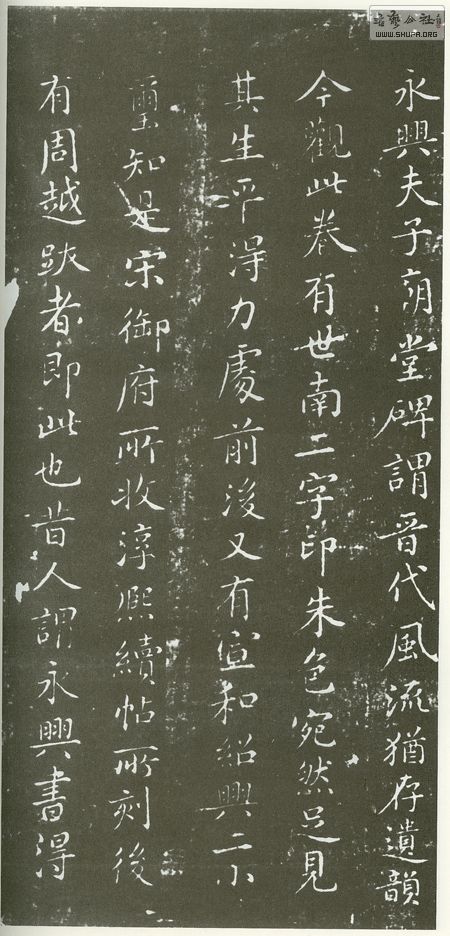 永興夫子廟堂碑謂晉代風流猶存遺韻
今觀此卷有世南二字印朱色宛然足見
其生平得力處前後又有宣和紹興二小
璽知是宋御府所收淳熙續帖所刻後
有周越跋者即此也昔人謂永興書得
WWW.SHUFA.ORG